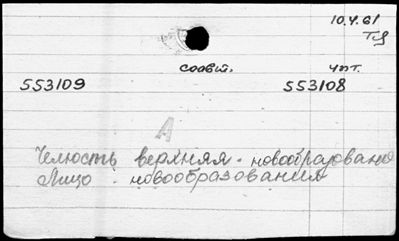 10.4.61
соавт. Чит.
553109 553108
А
Челюсть верхняя - новообразование
Лицо - новообразования